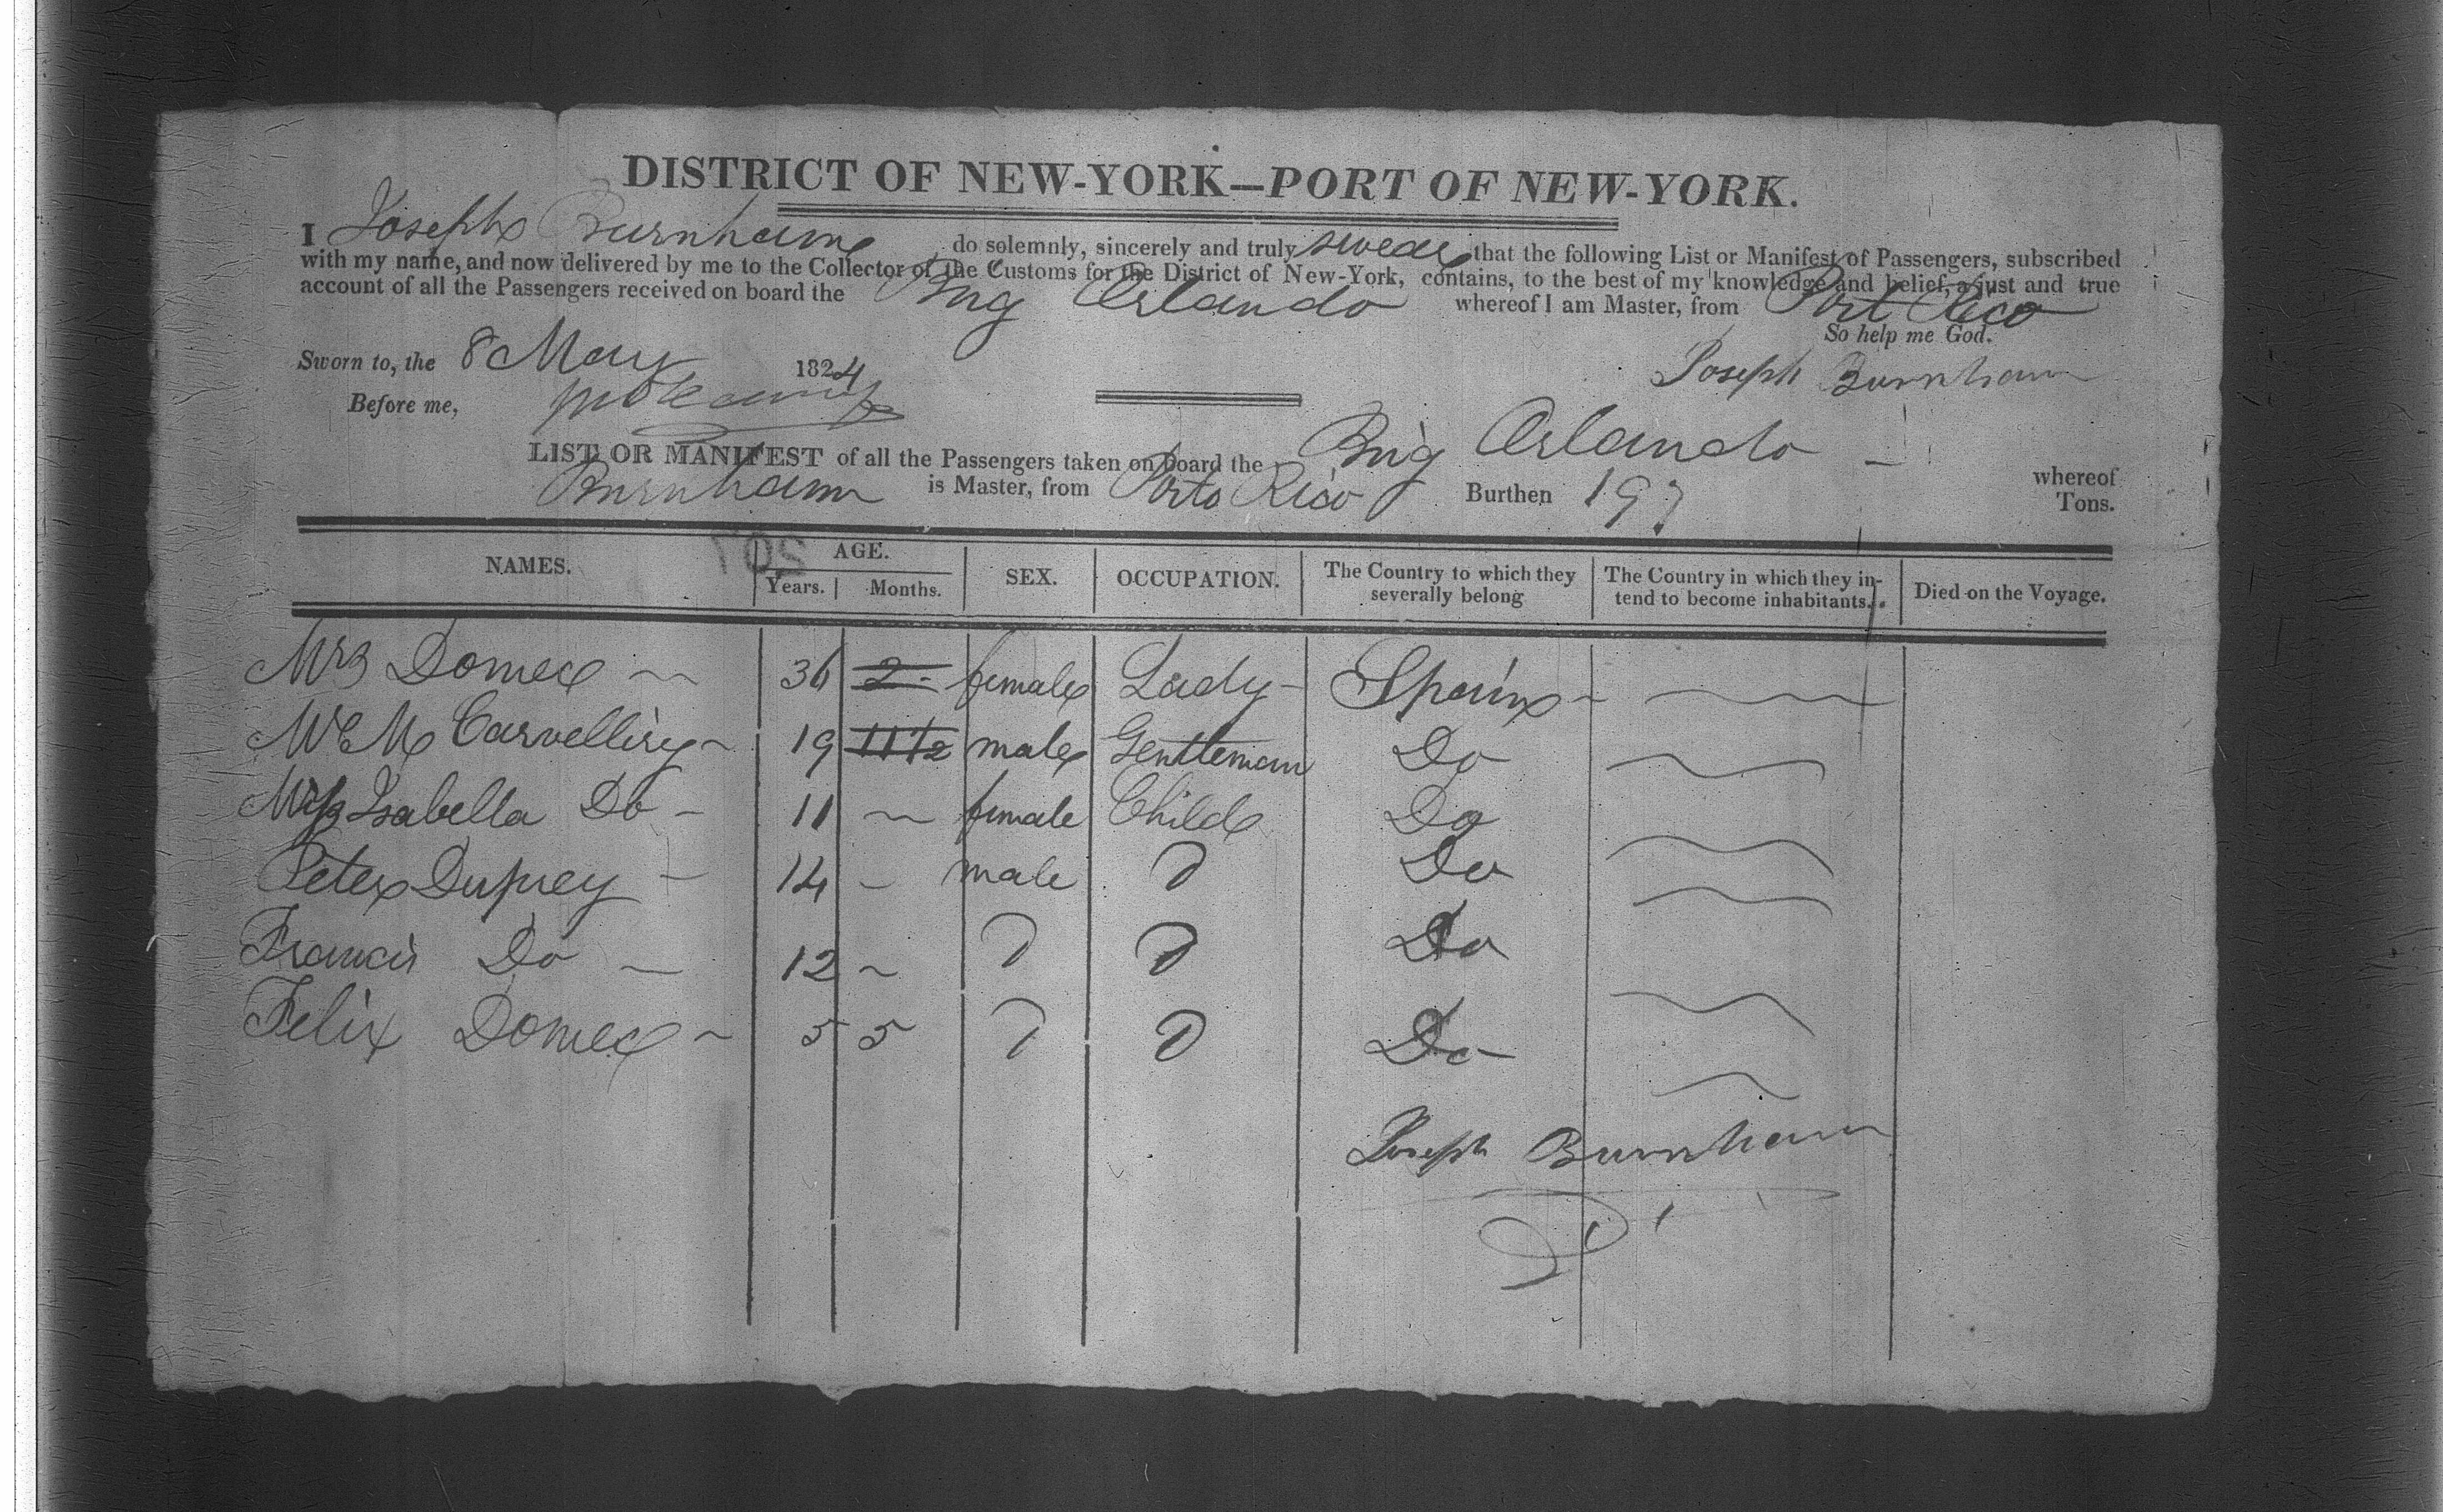 DISTRICT OF NEW-YORK—PORT OF NEW-YORK.
I Joseph Burnham do solemnly, sincerely and truly swear that the following List or Manifest of Passengers, subscribed
with my name, and now delivered by me to the Collector of the Customs for the District of New-York, contains, to the best of my knowledge and belief, a just and true
account of all the Passengers received on board the Brig Orlando whereof I am Master, from Port Rico
So help me God.
Sworn to, the 8 May 1824 Joseph Burnham
Before me,
LIST OR MANIFEST of all the Passengers taken on board the Brig Orlando whereof
Burnham is Master, from Porto Rico Burthen 197 Tons.
201
NAMES. AGE. Years. Months. SEX. OCCUPATION. The Country to which they severally belong The Country in which they intend to become inhabitants. Died on the Voyage.
Mrs Domec 36 2 female Lady Spain
Mr M 19 11 1/2 male Gentleman Do
Miss Isabella Do 11 female Child Do
Peter Duprey 14 male D Do
Francis Do 12 D D Do
Felix Domec 5 5 D D Do
Joseph Burnham